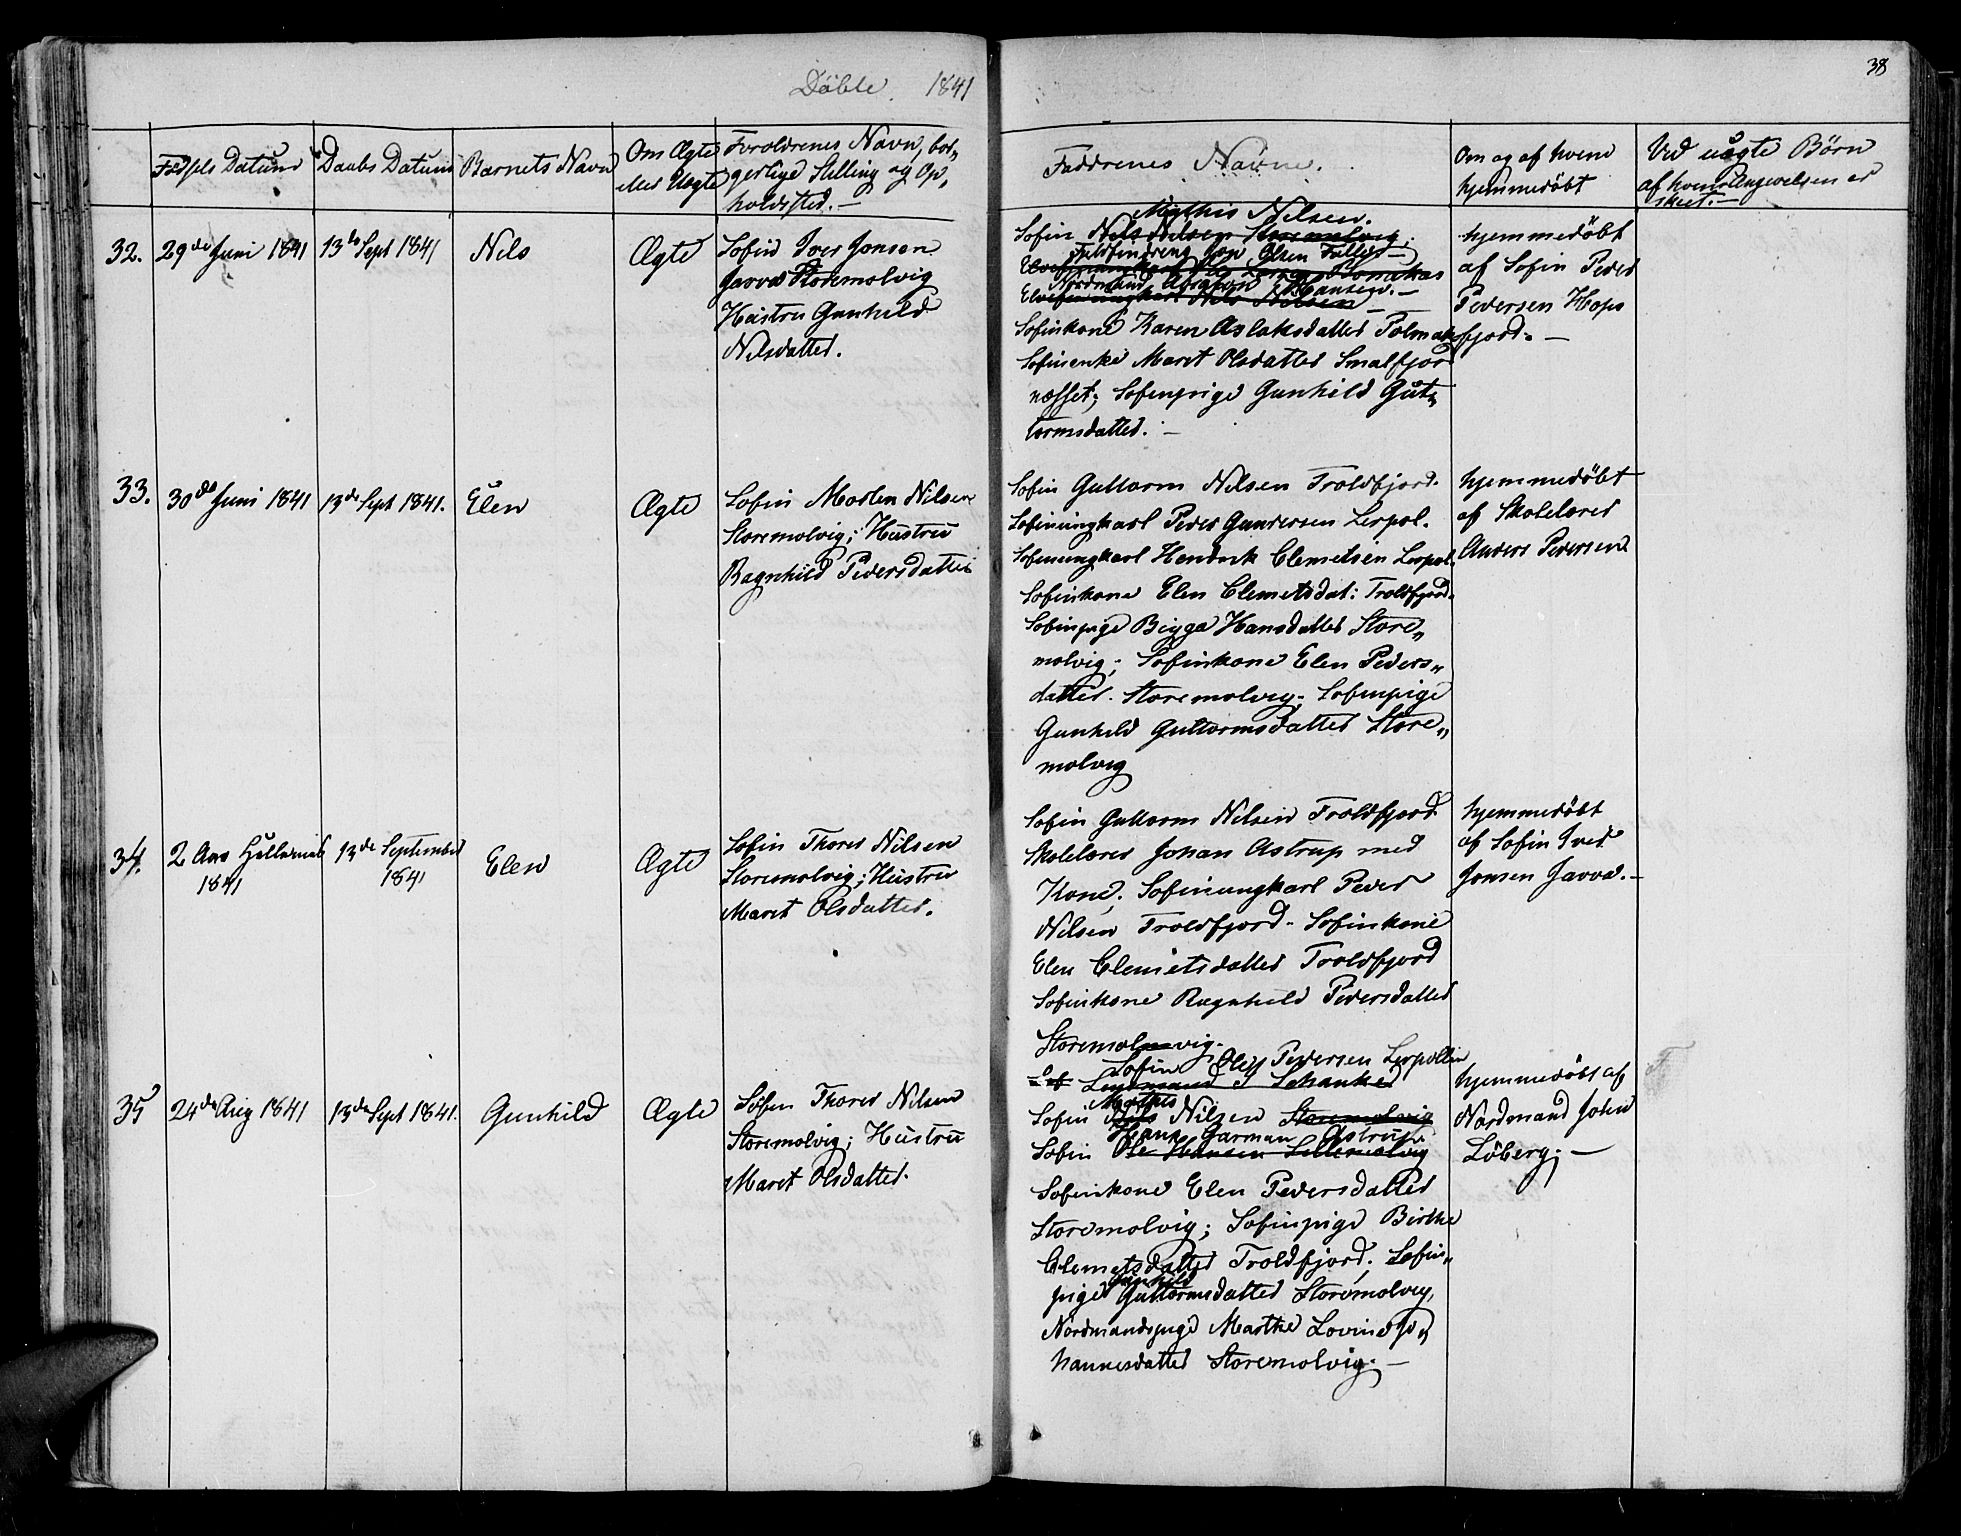 Döbte 1841
38
Fødsels Datum
Daabs Datum
Barnets Navn
Om Ægte
eller Uægte
Forældrenes Navn, bor„
gerlige Stilling og Op„
holdssted. —
Faddrenes Navne.
Om og af hvem
hjemmedöbt
Ved uægte Börn
af hvem Angivelsen er
skeet. —
32.
29de Juni 1841
13de Sept 1841
Nils
Ægte
Søfin Iver Jonsen
Javva Storemolvig
Hustru Gunhild
Nilsdatter.
Mathis Nilsen.
Søfin Nils Nilsen Storemolvig.
Olsen
Nordmand Hansen. —
Nils Nilsen —
Søfinkone Karen Aslaksdatter Polmak
Søfinenke Maret Olsdatter Smalfjor
næsset; Søfinpige Gunhild Gut„
tormsdatter. —
hjemmedöbt
af Søfin Peder
Pedersen Hops
fjord. —
33.
30de Juni 1841
13de Sept 1841.
Elen
Ægte
Søfin Morten Nilsen
Storemolvig; Hustru
Ragnhild Pedersdatter
Søfin Guttorm Nilsen Troldfjord.
Søfinungkarl Peder Gundersen Lerpol.
Søfinungkarl Hendrik Clemetsen Lerpol.
Søfinkone Elen Clemetsdat: Troldfjord.
Søfinpige Bigga Hansdatter Store„
molvig; Søfinkone Elen Peders„
datter. Storemolvig. Søfinpige
Gunhild Guttormsdatter Store„
molvig
hjemmedöbt
af Skolelærer
Anders Pedersen
34.
2 1841
13de September
1841
Elen
Ægte
Søfin Thorer Nilsen
Storemolvig; Hustru
Maret Olsdatter.
Søfin Guttorm Nilsen Troldfjord
Skolelærer Johan Astrup med
Kone; Søfinungkarl Peder
Nilsen Troldfjord. Søfinkone
Elen Clemetsdatter Troldfjord
Søfinkone Ragnhild Pedersdatter
Storemolvig.
hjemmedöbt
af Søfin Iver
Jonsen Javva. —
35
24de Aug 1841
13de Sept 1841.
Gunhild
Ægte
Søfin Thorer Nilsen
Storemolvig; Hustru
Maret Olsdatter.
Søfin Ole Pedersen Lerpollen
Schanke
Mathis
Søfin Nils Nilsen Storemolvig
Hans Garman Astrup
Søfin Ole Hansen Lillemolvig
Søfinkone Elen Pedersdatter
Storemolvig; Søfinpige Birthe
Clemetsdatter Troldfjord; Søfin„
Gunhild
pige Guttormsdatter Storemolvig,
Nordmandspige Marthe Lovine Jo„
hannesdatter Storemolvig. —
hjemmedöbt af
Nordmand John
Löberg; —